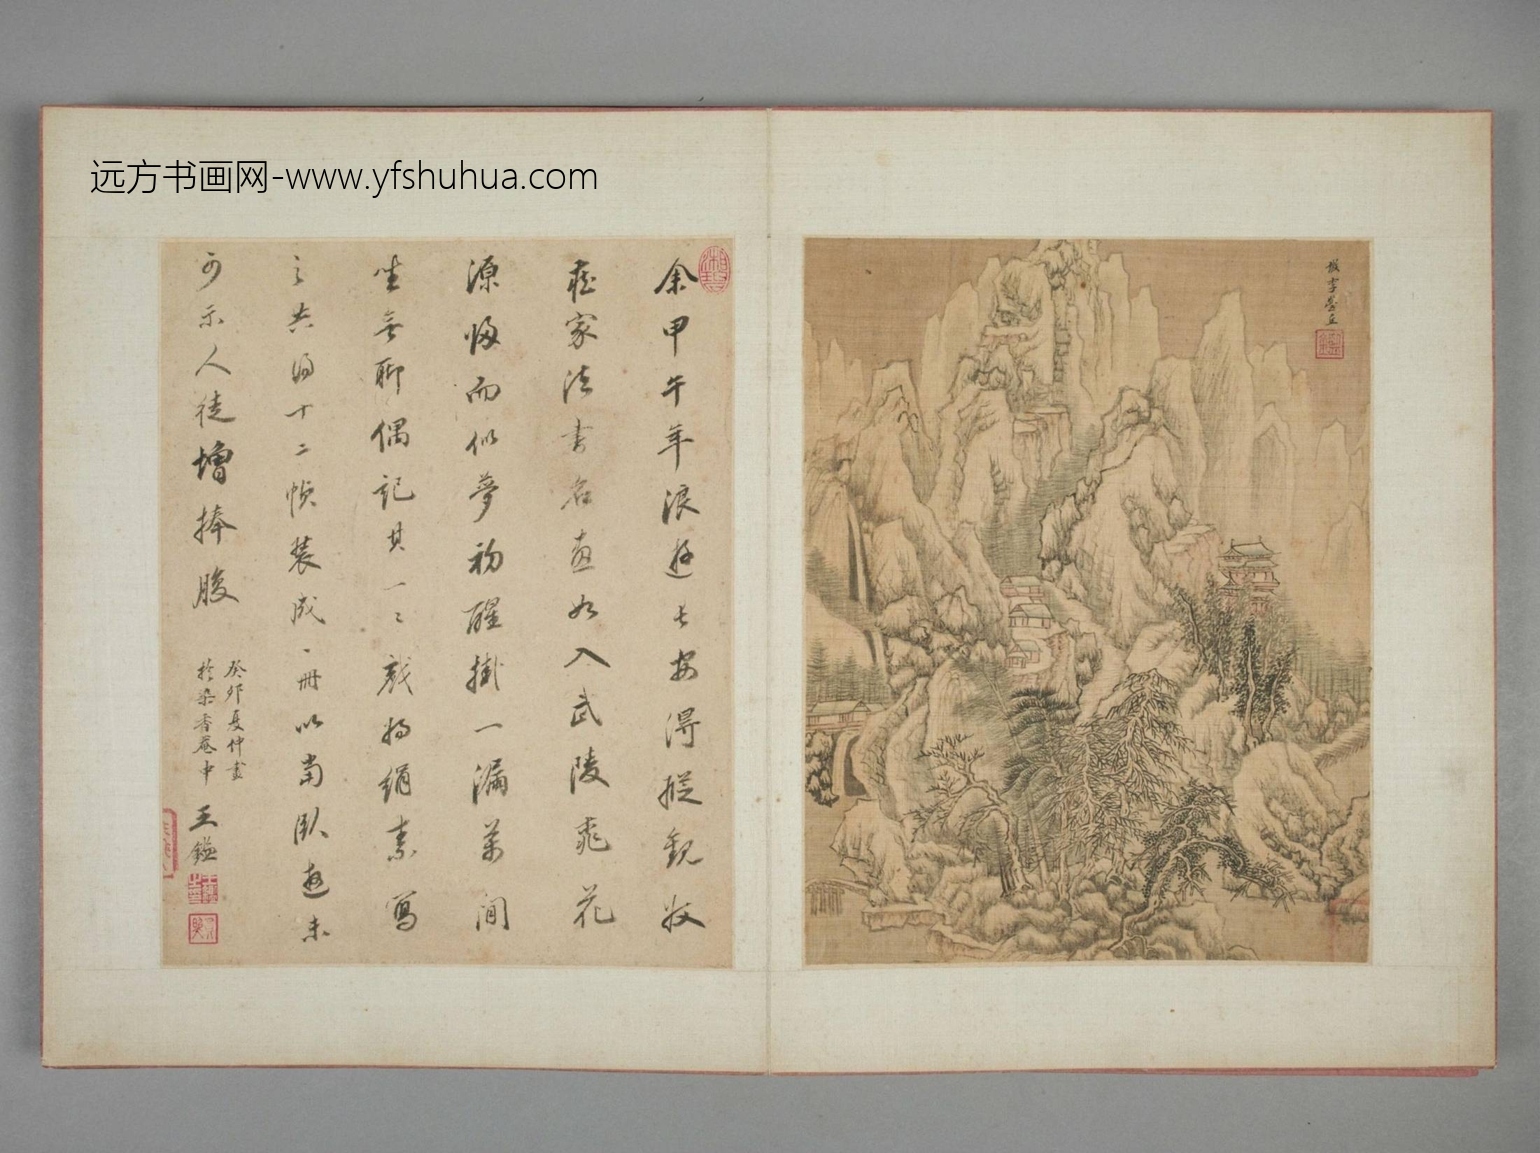 远方书画网-www.yfshuhua.com
擬李營丘
余甲午年浪遊長安得縱觀收
藏家法書名畫如入武陵桃花
源歸而似夢初醒掛一漏萬閒
坐無聊偶記其一二戲將絹素寫
之共得十二幀裝成一冊以當臥遊未
可示人徒增捧腹
癸卯夏仲畫
於染香菴中
王鑑